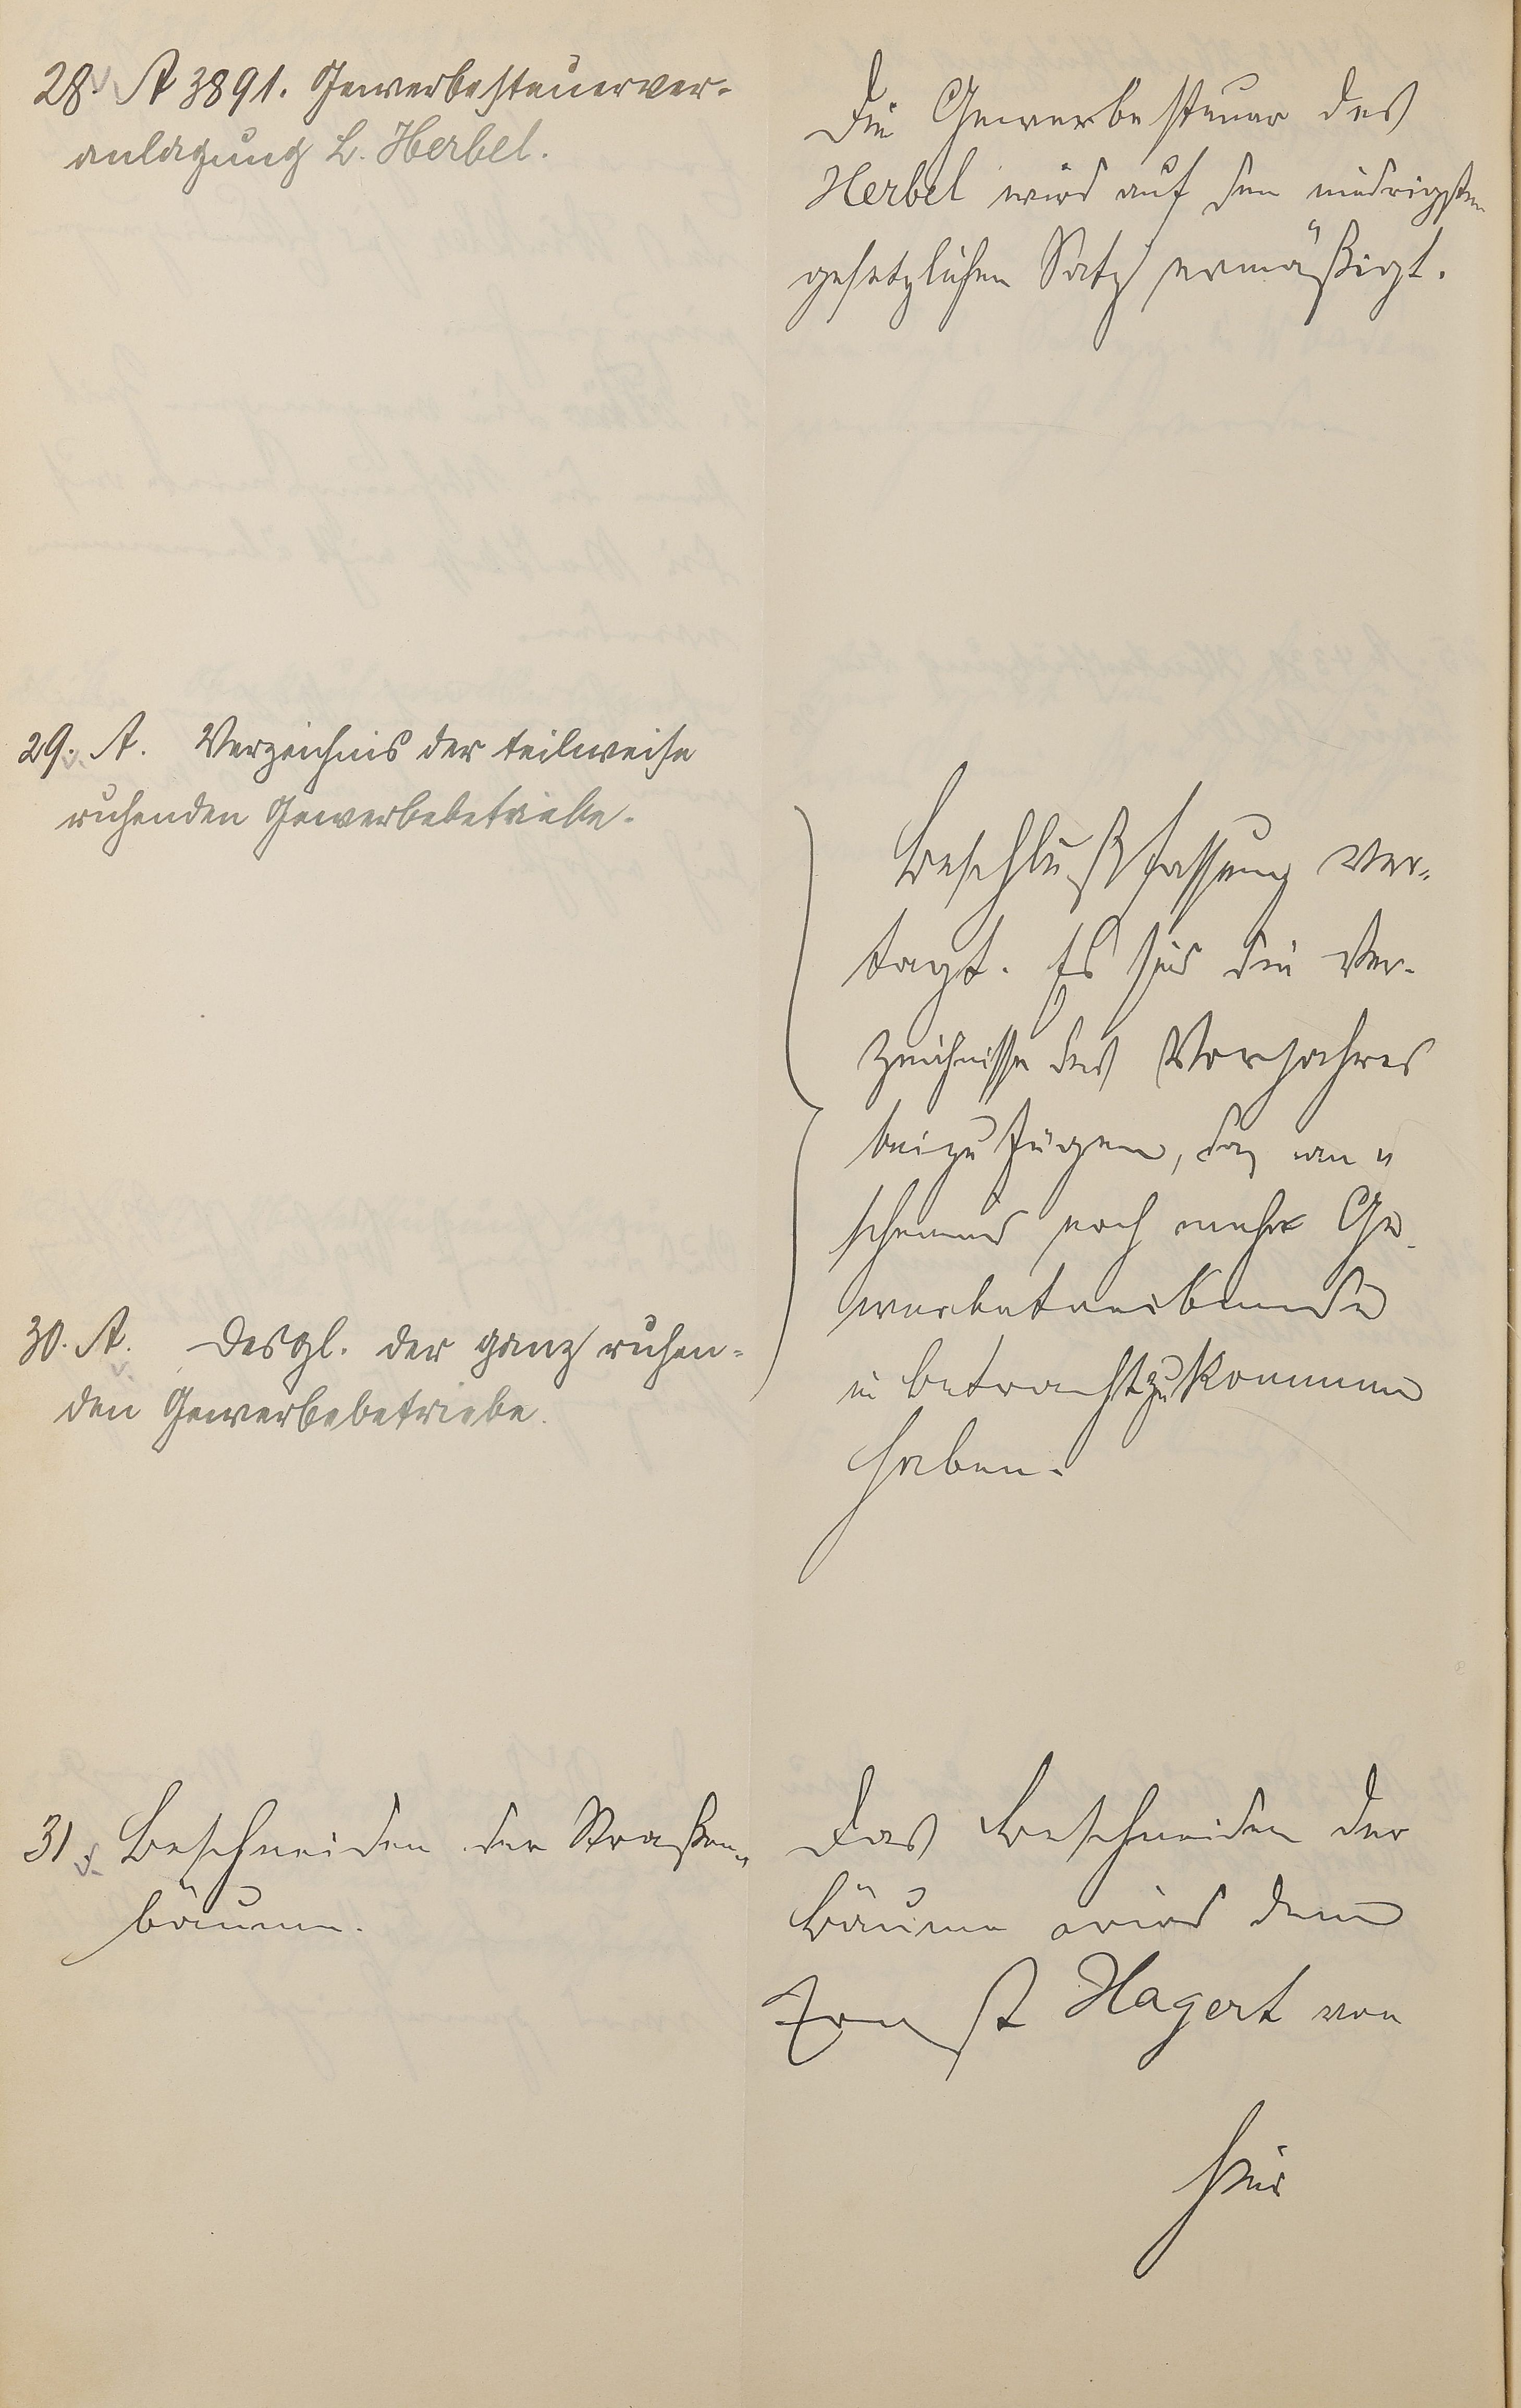 28. A 3891. Gewerbesteuerver-
anlagung L. Herbel.
Die Gewerbesteuer des
Herbel wird auf den niedrigsten
gesetzlichen Satz ermäßigt.
29. A. Verzeichnis der teilweise
ruhenden Gewerbebetriebe.
30. A. Desgl. der ganz ruhen-
den Gewerbebetriebe.
Beschlußfassung ver-
tagt. Es sind die Ver-
zeichnisse des Vorjahres
beizufügen, da an-
scheinend noch mehr Ge-
werbetreibende
in betracht zu kommen
haben.
31. Beschneiden der Straßen-
bäume.
Das Beschneiden der
Bäume wird dem
Ernst Hagert von
hier